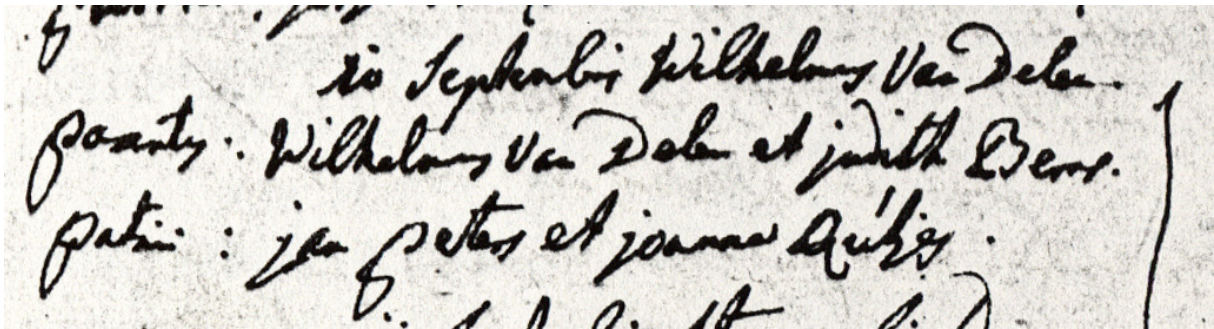 10 Septembris Wilhelmus Van Delen.
parentes: Wilhelmus Van Delen et judith Bems.
patrini: jan peters et joanna